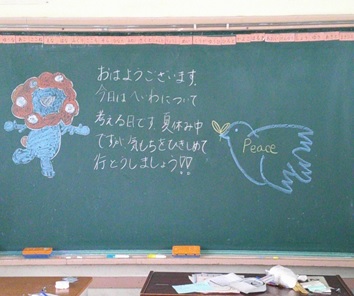 おはようございます。
今日はへいわについて
考える日です。夏休み中
ですが気もちをひきしめて
行どうしましょう!!
Peace